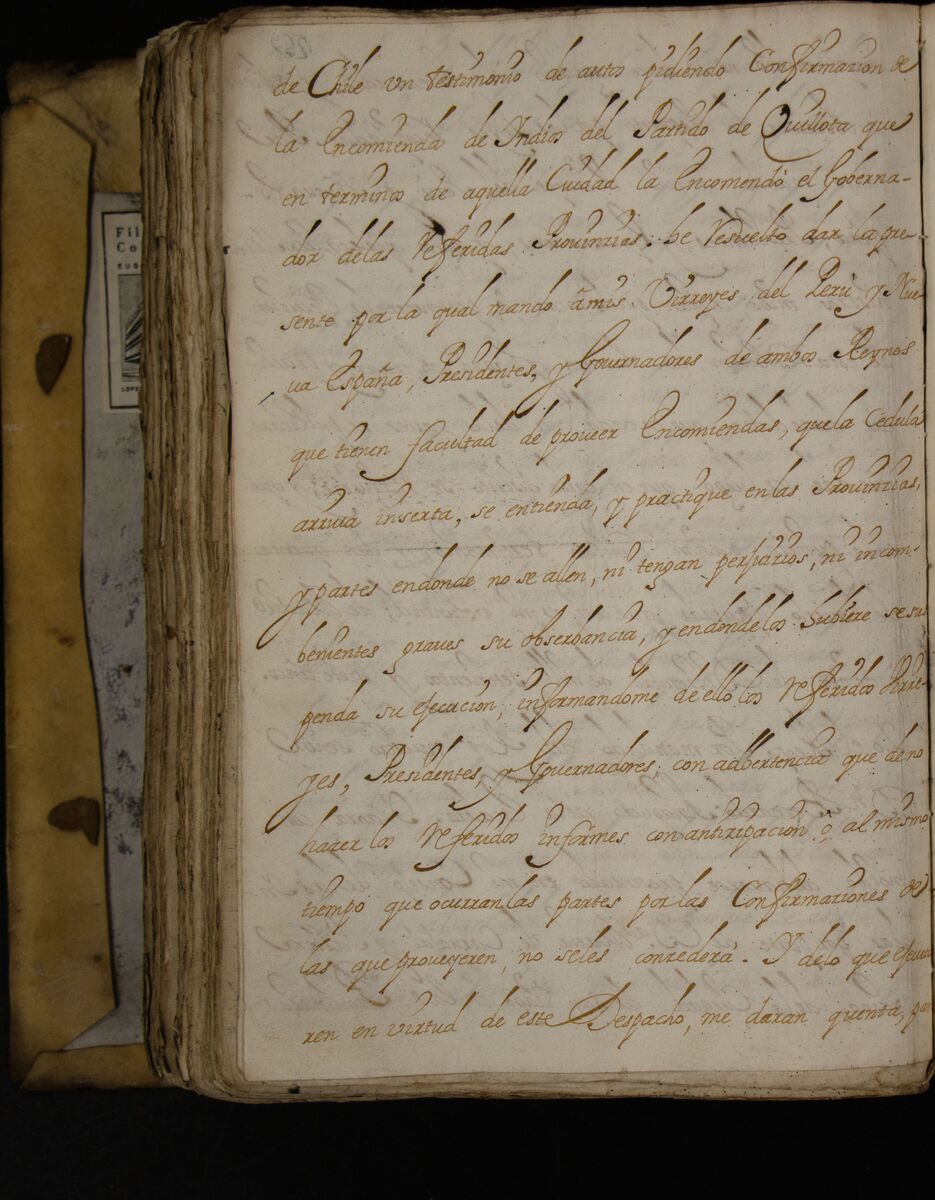 de Chile un testimonio de autos pidiendo Confirmazion de
la Encomienda de Indios del Partido de Quillota que
en terminos de aquella Ciudad la Encomendò el Goberna-
dor delas referidas Provinzias: he resuelto dar la pre-
sente por la qual mando à mis Virreyes del Perù y Nue-
va España, Presidentes, y Governadores de ambos Reynos
que tienen facultad de proveer Encomiendas, que la Cedula
arriva inserta, se entienda, y practique en las Provinzias,
y partes endonde no se allen, ni tengan perjuizios, ni incom-
benientes graves su obserbancia, y endonde los hubiere se sus
penda su ejecuzion, informandome de ello los referidos Virre-
yes, Presidentes, y Governadores; con adbertencia que de no
hazer los referidos informes con antizipazion ò, al mismo
tiempo que ocurran las partes por las Confirmaziones de
las que proveyeren, no seles conzederà. Y delo que ejecuta
ren en virtud de este Despacho, me daran quenta, par
Fil
Co
EUG
LOPE